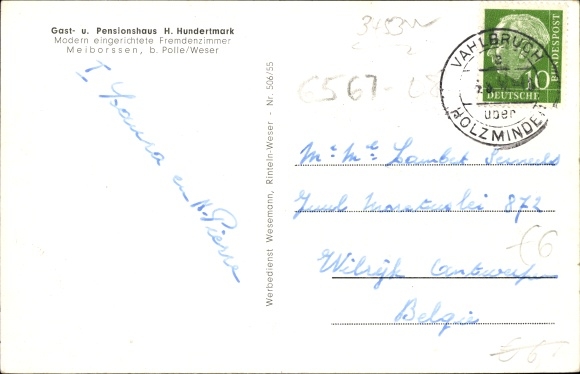 Gast- u. Pensionshaus H. Hundertmark
Modern eingerichtete Fremdenzimmer
Meiborssen, b. Polle/Weser
T Laura en H. Pierre
Werbedienst Wesemann, Rinteln-Weser - Nr. 506/55
6567
VAHLBRUCH
über
HOLZMINDEN
10
DEUTSCHE
BUNDESPOST
Mr Me Lambert
872
Wilrijk Antwerpen
Belgie
€6